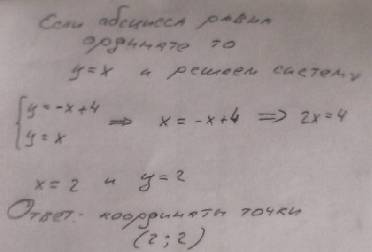 Если абсцисса равна
ординате то
y=x и решаем систему
{ y=-x+4
y=x
⇒ x=-x+4 ⇒ 2x=4
x=2 и y=2
Ответ: координаты точки
(2;2)